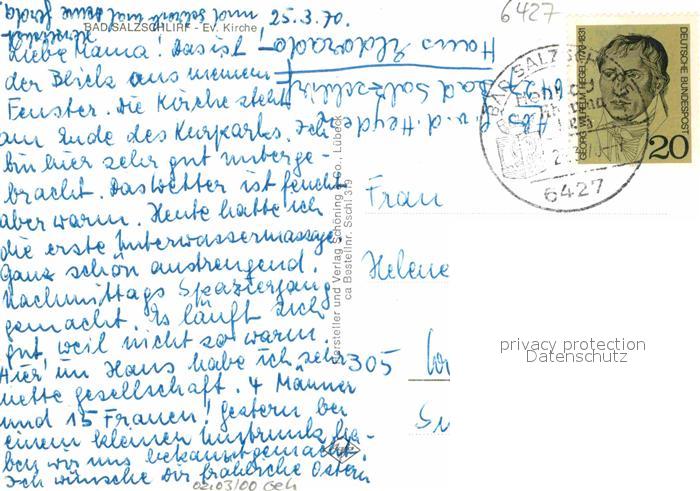 25.3.70.
6427
BAD SALZSCHLIRF - Ev. Kirche
Liebe Mama! Das ist
der Blick aus meinem
Fenster. Die Kirche steht
am Ende des Kurparks. Ich
bin hier sehr gut unterge-
bracht. Das Wetter ist feucht
aber warm. Heute hatte ich
die erste Unterwassermassage
Ganz schön anstrengend.
Nachmittags Spaziergang
gemacht. Es läuft sich
gut, weil nicht so warm.
Hier im Haus habe ich sehr
nette Gesellschaft. 4 Männer
und 15 Frauen! Gestern bei
einem kleinen Umtrunk ha-
ben wir uns bekanntgemacht.
Ich wünsche Dir fröhliche Ostern
und
Abs. v. d. Heyde
6427
Bad Salzschlirf
Haus Eldorado
Hersteller und Verlag Schöning & Co., Lübeck
ca Bestellnr. Sschl 319
DEUTSCHE BUNDESPOST
GEORG WILHELM FRIEDR. HEGEL 1770-1831
20
BAD SALZSCHLIRF
6427
Frau
Helene
305
privacy protection
Datenschutz
02/03/00 Geh